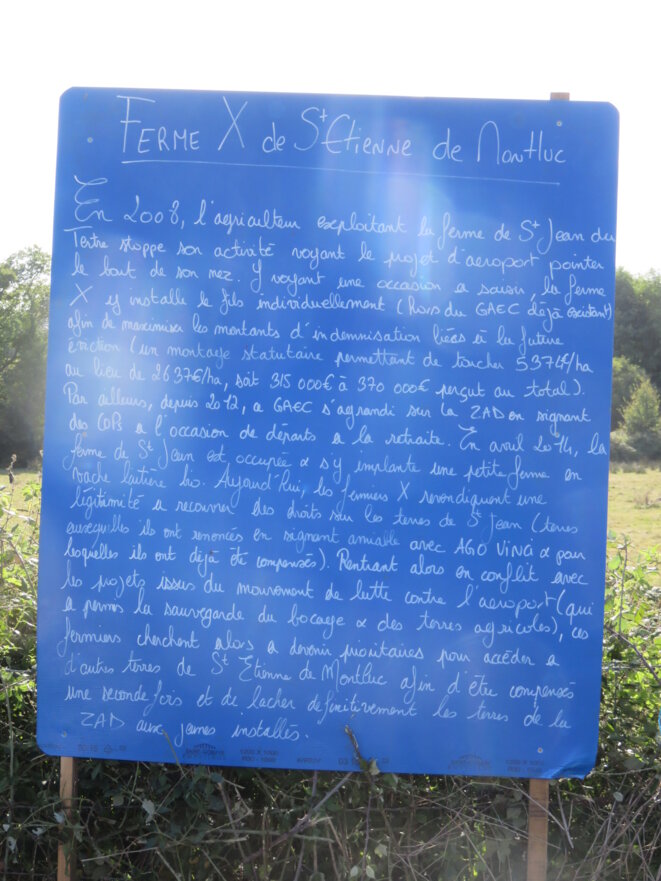 FERME X de St Etienne de Montluc
En 2008, l'agriculteur exploitant la ferme de St Jean du
Tertre stoppe son activité voyant le projet d'aeroport pointer
le bout de son nez. Y voyant une occasion a saisir, la ferme
X y installe le fils individuellement (hors du GAEC déjà existant)
afin de maximiser les montants d'indemnisation liées à la future
éviction (un montage statutaire permettant de toucher 5374€/ha
au lieu de 2637€/ha, soit 315 000€ à 370 000€ perçut au total).
Par ailleurs, depuis 2012, ce GAEC s'agrandi sur la ZAD en signant
des COPs a l'occasion de départs a la retraite. En avril 2014, la
ferme de St Jean est occupée & s'y implante une petite ferme en
vache laitière bio. Aujourd'hui, les fermiers X revendiquent une
légitimité a recouvrer des droits sur les terres de St Jean (terres
auxquelles ils ont renoncés en signant amiable avec AGO VINCI & pour
lesquelles ils ont déjà été compensés). Rentrant alors en conflit avec
les projets issus du mouvement de lutte contre l'aeroport (qui
a permis la sauvegarde du bocage & des terres agricoles), ces
fermiers cherchent alors a devenir prioritaires pour accéder a
d'autres terres de St Etienne de Montluc afin d'être compensés
une seconde fois et de lacher définitivement les terres de la
ZAD aux jeunes installés.
1200 X 1000
1200 X 1000